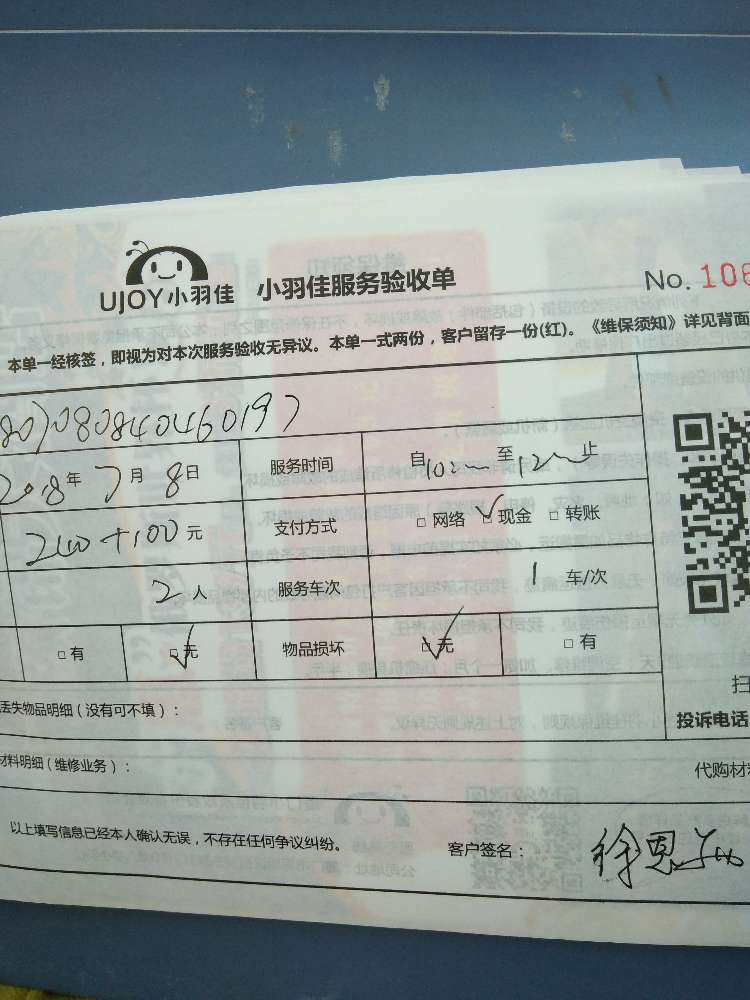 UJOY小羽佳 小羽佳服务验收单 No. 106
本单一经核签，即视为对本次服务验收无异议。本单一式两份，客户留存一份(红)。《维保须知》详见背面
807080840460197
2018年7月8日 服务时间 自10:~至12:~止
240+100元 支付方式 □网络 ☑现金 □转账
2人 服务车次 1车/次
□有 ☑无 物品损坏 ☑无 □有
丢失物品明细（没有可不填）： 投诉电话
材料明细（维修业务）： 代购材
以上填写信息已经本人确认无误，不存在任何争议纠纷。 客户签名： 徐恩